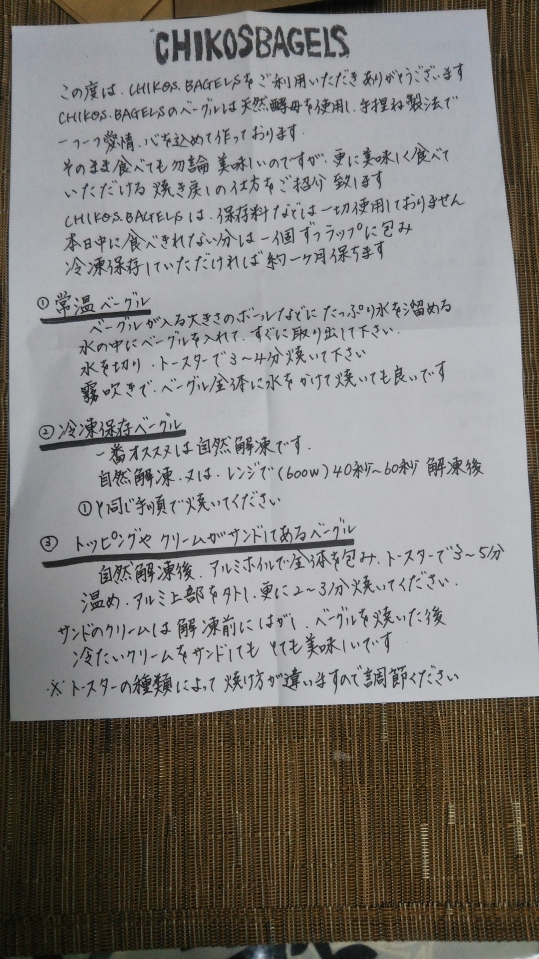 CHIKOSBAGELS
この度は、CHIKOS.BAGELSをご利用いただきありがとうございます
CHIKOS.BAGELSのベーグルは天然酵母を使用し、手捏ね製法で
一つ一つ愛情、心を込めて作っております.
そのまま食べても勿論 美味しいのですが、更に美味しく食べて
いただける 焼き戻しの仕方をご紹介 致します
CHIKOS.BAGELSは、保存料などは一切使用しておりません
本日中に食べきれない分は 一個ずつラップに包み
冷凍保存していただければ 約一ヶ月保ちます
① 常温ベーグル
ベーグルが入る大きさのボールなどに たっぷり水を溜める
水の中にベーグルを入れて、すぐに取り出して下さい.
水を切り、トースターで3〜4分焼いて下さい
霧吹きで、ベーグル全体に水をかけて焼いても良いです
② 冷凍保存ベーグル
一番オススメは自然解凍です.
自然解凍、又は、レンジで(600w)40秒〜60秒 解凍後
①と同じ手順で焼いてください
③ トッピングや クリームがサンドしてあるベーグル
自然解凍後、アルミホイルで全体を包み、トースターで3〜5分
温め、アルミ上部を外し、更に2〜3分焼いてください.
サンドのクリームは 解凍前にはがし、ベーグルを焼いた後
冷たいクリームをサンドしても とても美味しいです
※ トースターの種類によって 焼け方が違いますので調節ください